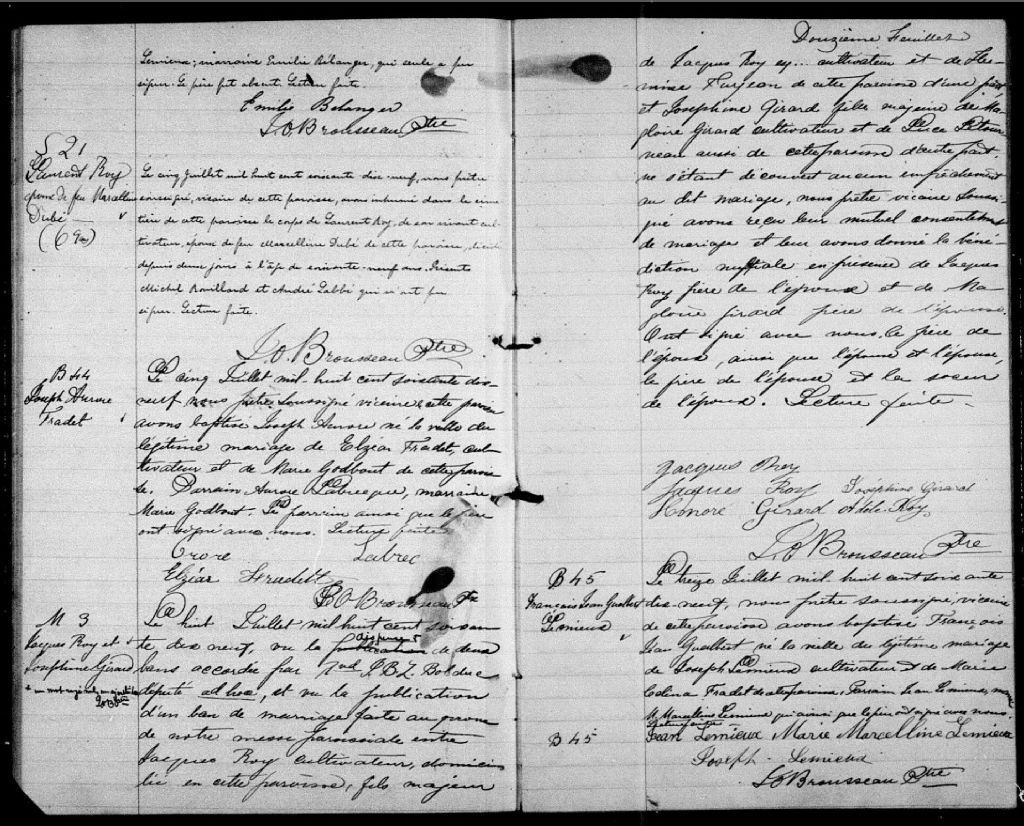 Lemieux; marraine Emilie Bélanger, qui seule a pu
signer. Le père fut absent. Lecture faite.
Emilie Belanger
J.O. Brousseau Ptre
S 21
Laurent Roy
époux de feu Marcelline
Dubé
(69 a)
Le cinq Juillet mil huit cent soixante dix-neuf, nous prêtre
soussigné, vicaire de cette paroisse, avons inhumé dans le cime
tière de cette paroisse le corps de Laurent Roy, de son vivant cul
tivateur, époux de feu Marcelline Dubé de cette paroisse, décédé
depuis deux jours à l'âge de soixante-neuf ans. Présents
Michel Rouillard et André Labbé qui n'ont pu
signer. Lecture faite.
J.O. Brousseau Ptre
B 44
Joseph Aurore
Fradet
Le cinq Juillet mil-huit cent soixante dix-
neuf nous prêtre soussigné vicaire de cette paroisse
avons baptisé Joseph Aurore né la veille du
légitime mariage de Elzéar Fradet, cul-
tivateur et de Marie Godbout de cette parois
se. Parrain Aurore Labrecque, marraine
Marie Godbout. Le parrain ainsi que le père
ont signé avec nous. Lecture faite
Orore Labrec
Elzéar Fradett
J.O. Brousseau Ptre
M 3
Jacques Roy et
Josephine Girard
+ un mot rayé nul, un ajouté bon
J.O.B. Ptre
Le huit Juillet mil huit cent soixan
te dix neuf, vu la dispense de deux
bans accordée par J.B.Z. Bolduc
député ad hoc, et vu la publication
d'un ban de marriage faite au prône
de notre messe paroissiale entre
Jacques Roy cultivateur, domicili
lié en cette paroisse, fils majeur
Douzième Feuillet
de Jacques Roy cultivateur et de
Turgeon de cette paroisse d'une part
et Josephine Girard fille majeure de Ma
gloire Girard cultivateur et de Luce Létour
neau aussi de cette paroisse d'autre part.
ne s'étant découvert aucun empêchement
au dit mariage, nous prêtre vicaire soussi
gné avons reçu leur mutuel consentement
de mariage et leur avons donné la béné
diction nuptiale en présence de Jacques
Roy père de l'époux et de Ma
gloire Girard père de l'épouse.
Ont signé avec nous, le père de
l'époux, ainsi que l'époux et l'épouse,
le frère de l'épouse et la soeur
de l'époux. Lecture faite.
Jacques Roy
Jacques Roy Josephine Gerard
Honoré Girard Adèle Roy
J.O. Brousseau Ptre
B 45
François Jean Gualbert
Lemieux
Le treize Juillet mil huit cent soixante
dix-neuf, nous prêtre soussigné, vicaire
de cette paroisse avons baptisé François
Jean Gualbert né la veille du légitime mariage
de Joseph Lemieux cultivateur et de Marie
Célina Fradet de cette paroisse, Parrain Jean Lemieux, marraine
M. Marcelline Lemieux qui ainsi que le père ont signé avec nous.
Lecture faite
B 45
Jean Lemieux Marie Marcelline Lemieux
Joseph Lemieux
J.O. Brousseau Ptre